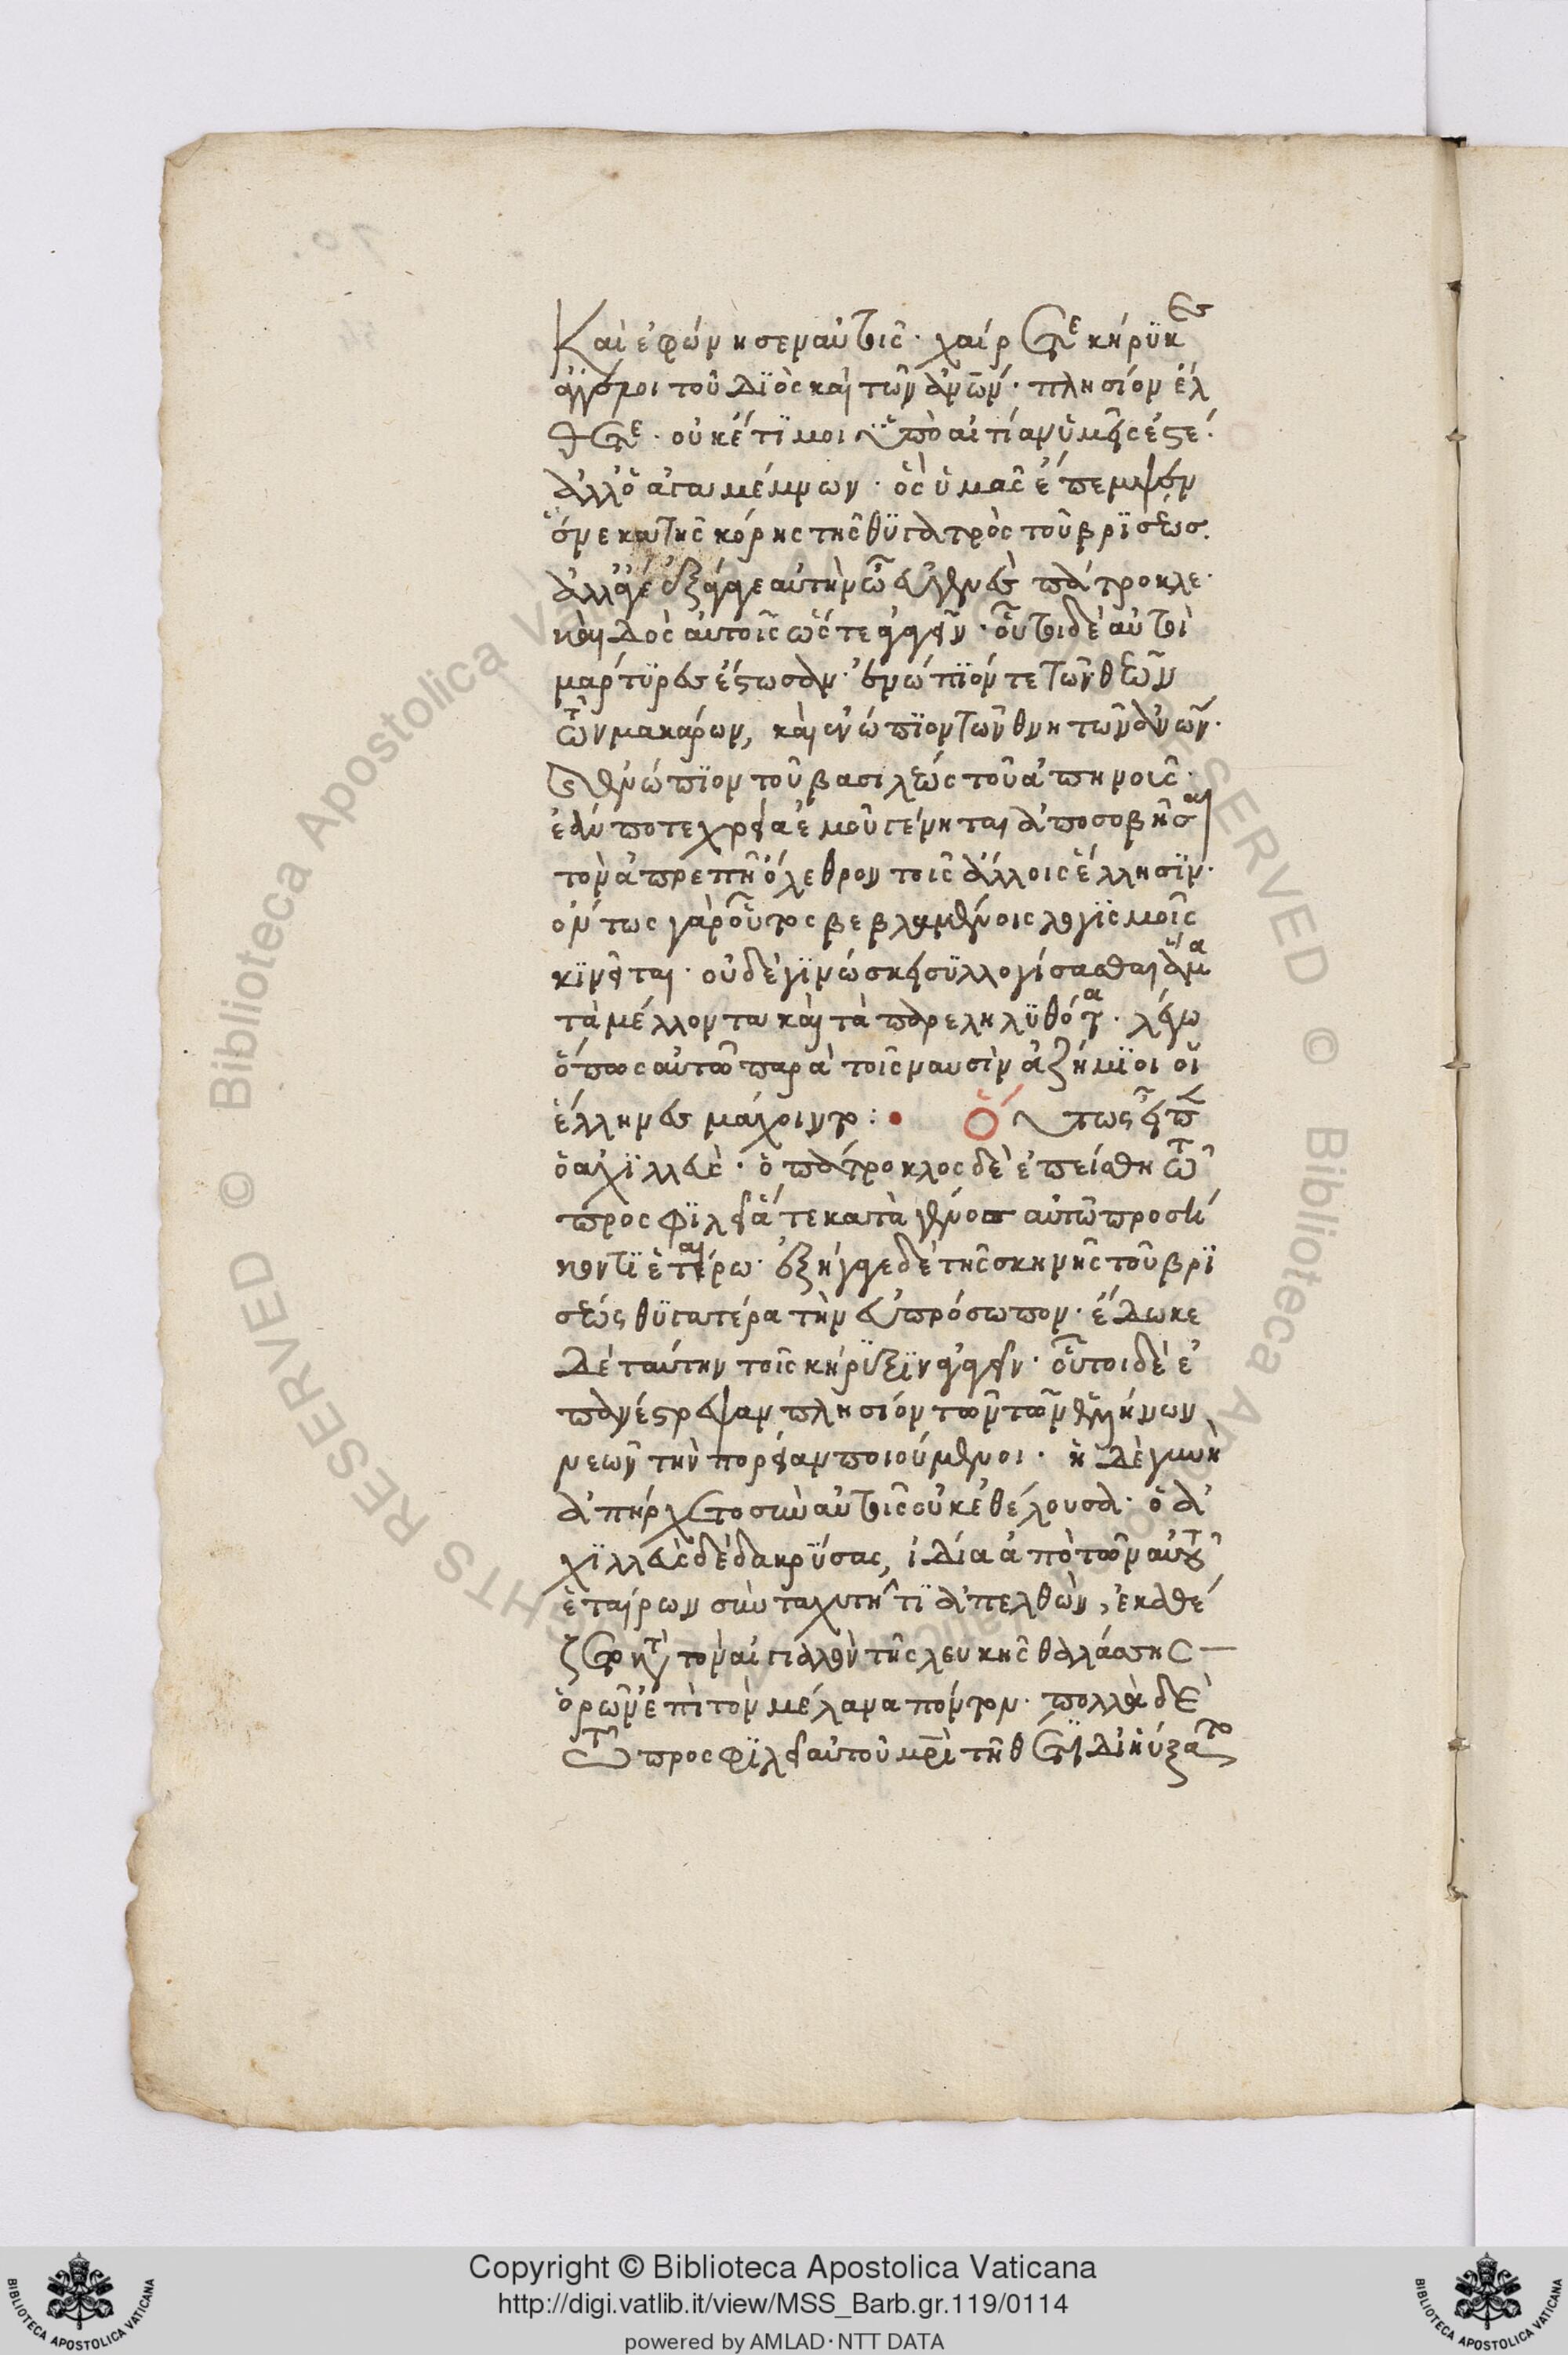 Καὶ ἐφώνησεν αὖθις· χαίρετε κήρυκες
ἄγγελοι τοῦ Διὸς καὶ τῶν ἀνῶν· πλησίον ἔλ
θετε· οὐκέτι μοι ὑπὸ αἰτίαν ὑμεῖς ἐστέ·
ἀλλ' ὁ ἀγαμέμνων· ὃς ὑμᾶς ἔπεμψεν
ἕνεκα τῆς κόρης τῆς θυγατρὸς τοῦ βρισέως.
ἀλλ' ἄγε ἔξαγε αὐτὴν ὦ εὐγενὲς πάτροκλε·
καὶ δὸς αὐτοῖς ὥστε ἄγειν· οὗτοι δὲ αὐτοὶ
μάρτυρες ἔστωσαν· ἐνώπιόν τε τῶν θεῶν
τῶν μακάρων, καὶ ἐνώπιον τῶν θνητῶν ἀνῶν·
καὶ ἐνώπιον τοῦ βασιλέως τοῦ ἀπηνοῖς·
ἐάν ποτε χρεία ἐμοῦ γένηται ἀποσοβῆσαι
τὸν ἀπρεπῆ ὄλεθρον τοῖς ἄλλοις ἕλλησιν·
ὄντως γὰρ οὗτος βεβλαμμένοις λογισμοῖς
κινεῖται· οὐδὲ γινώσκει συλλογίσασθαι ἅμα
τὰ μέλλοντα καὶ τὰ παρεληλυθότα· λέγω
ὅπως αὐτῶ παρὰ τοῖς ναυσὶν ἀζήμιοι οἱ
ἕλληνες μάχοιντο: • Οὕτως εἶπ
ὁ ἀχιλλεὺς· ὁ πάτροκλος δὲ ἐπείσθη τῶ
προσφιλεῖ ἅτε κατὰ γένος αὐτῶ προσή
κοντι ἑταίρω· ἐξήγαγε δὲ τῆς σκηνῆς τοῦ βρι
σέως θυγατέρα τὴν εὐπρόσωπον· ἔδωκε
δὲ ταύτην τοῖς κήρυξιν ἄγειν· οὗτοι δὲ ἐ
πανέστρεψαν πλησίον τῶν τῶν ἑλλήνων
νεῶν τὴν πορείαν ποιούμενοι· ἡ δὲ γυνὴ
ἀπήρχετο σὺν αὐτοῖς οὐκ ἐθέλουσα· ὁ ἀ
χιλλεὺς δὲ δακρύσας, ἰδία ἀπὸ τῶν αὐτοῦ
ἑταίρων σὺν ταχυτῆτι ἀπελθὼν, ἐκαθέ
ζετο κατὰ τὸν αἰγιαλὸν τῆς λευκῆς θαλάσσης
ὁρῶν ἐπὶ τὸν μέλανα πόντον· πολλὰ δὲ
τῆ προσφιλεῖ αὐτοῦ μρὶ τῆ θέτιδι ηὔξατο
Copyright © Biblioteca Apostolica Vaticana
http://digi.vatlib.it/view/MSS_Barb.gr.119/0114
powered by AMLAD·NTT DATA